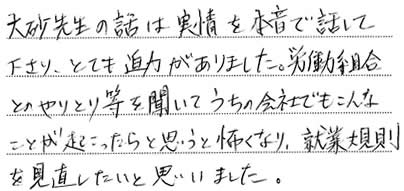 大砂先生の話は実情を本音で話して
下さり、とても迫力がありました。労働組合
とのやりとり等を聞いてうちの会社でもこんな
ことが起こったらと思うと怖くなり、就業規則
を見直したいと思いました。